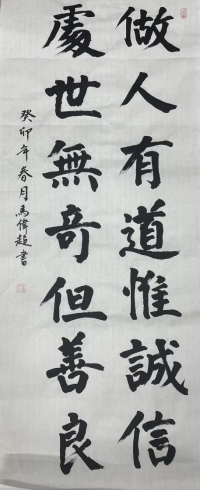 做人有道惟誠信
處世無奇但善良
癸卯年春月馬偉超書